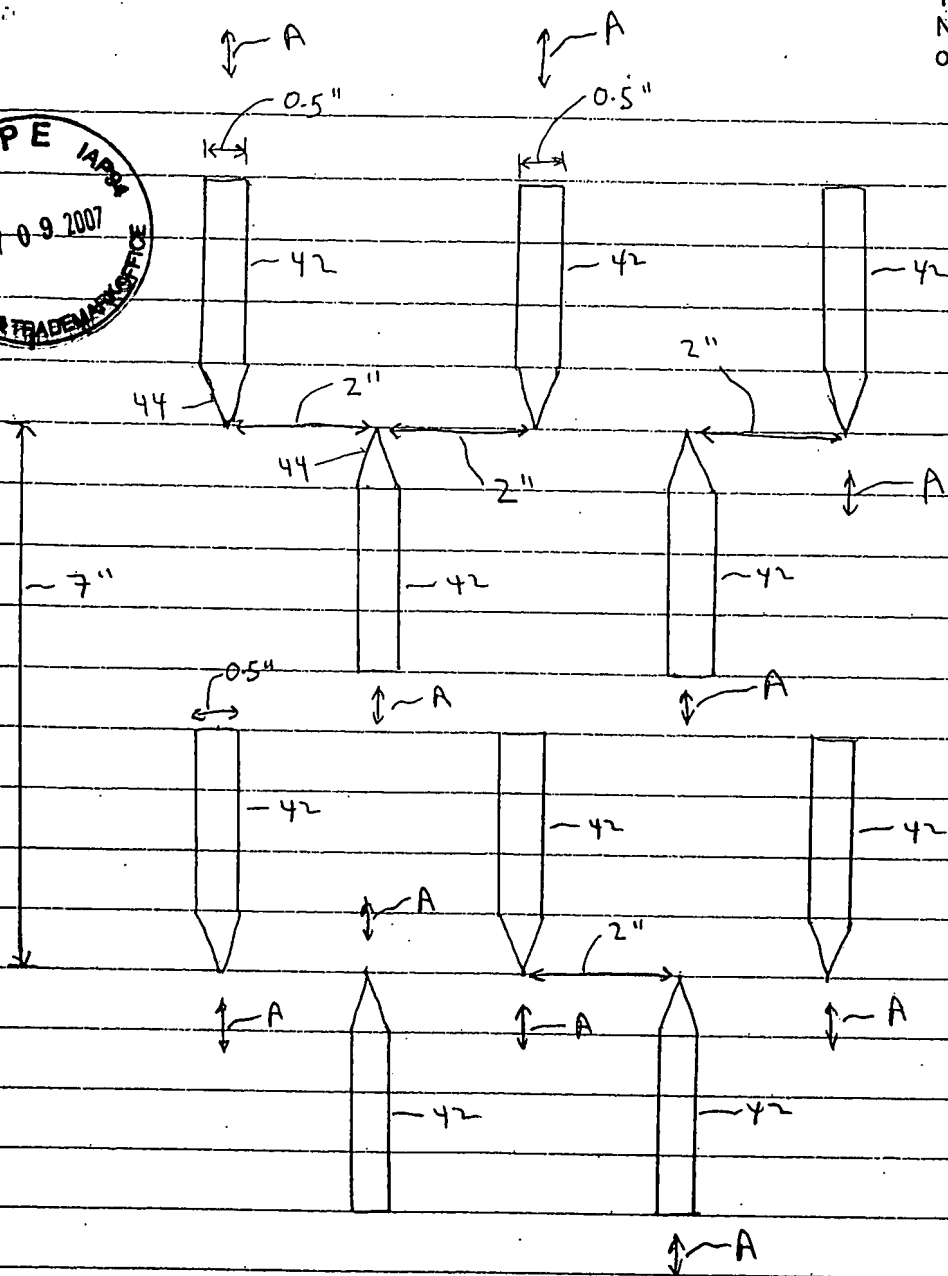 A A
N
O
0.5" 0.5"
P E IAP94
0 9 2007
TRADEMARK OFFICE
42 42 42
2"
44 2"
44 2"
A
~ 7" 42 42
0.5" A A
42 42 42
A
2"
A A A
42 42
A